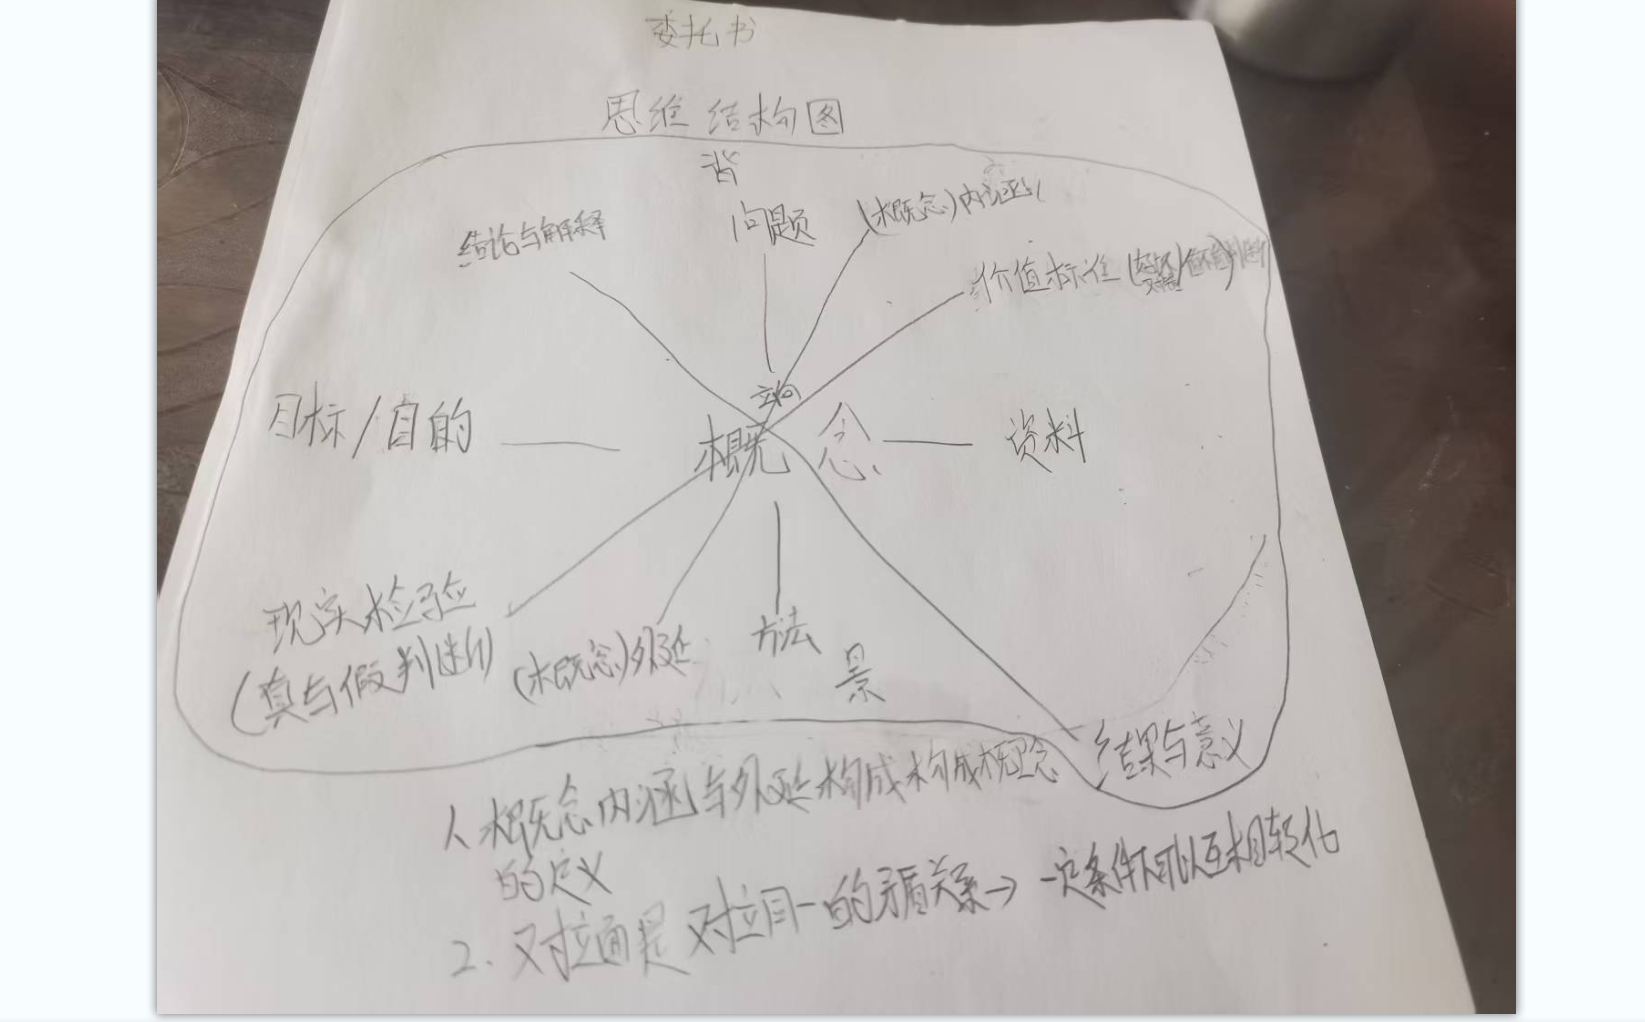 委托书
思维结构图
背
结论与解释
问题
(概念)内涵
价值标准
目标/目的
概念
资料
现实检验
(真与假判断)
(概念)外延
方法
景
结果与意义
1 概念内涵与外延构成构成概念
的定义
2. 对立面是对立同一的矛盾关系→一定条件下可以互相转化